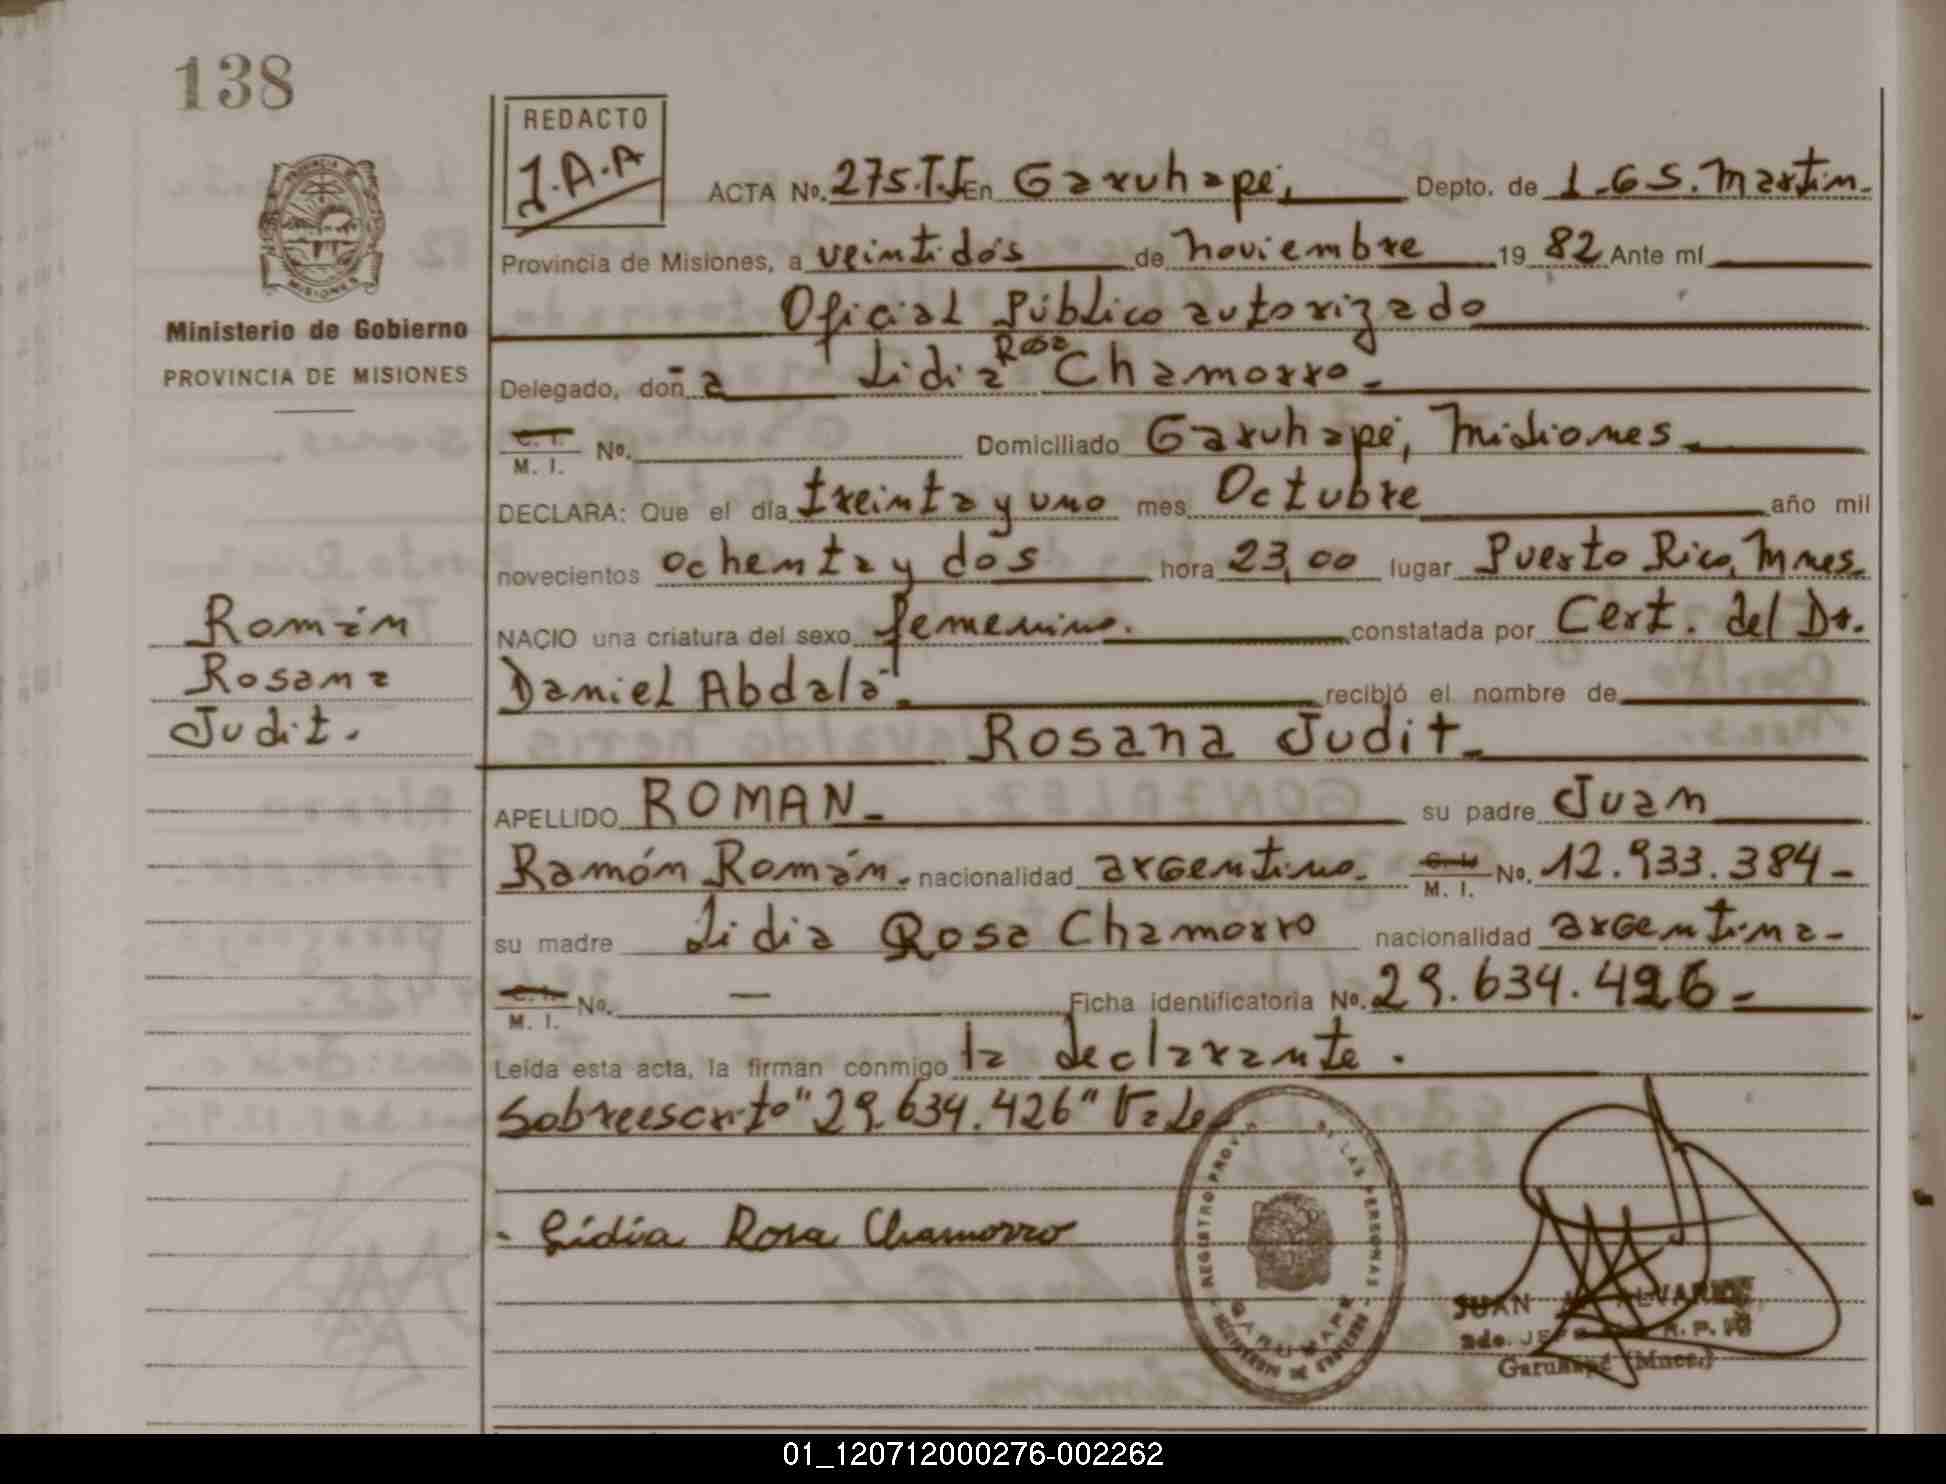 138
REDACTO
J.A.A
ACTA No. 275.T.I En Garuhapé, Depto. de L.G.S. Martin.
Provincia de Misiones, a veintidós de noviembre 19 82 Ante mí
Oficial Público autorizado
Delegado, doñ a Lidia Rosa Chamorro.
C. I.
M. I. No. Domiciliado Garuhapé, Misiones
DECLARA: Que el día treinta y uno mes Octubre año mil
novecientos ochenta y dos hora 23,00 lugar Puerto Rico, Mnes.
NACIO una criatura del sexo femenino. constatada por Cert. del Dr.
Daniel Abdala recibió el nombre de
Rosana Judit
APELLIDO ROMAN su padre Juan
Ramón Román. nacionalidad argentino. M. I. No. 12.933.384
su madre Lidia Rosa Chamorro nacionalidad argentina
C. I.
M. I. No. — Ficha identificatoria No. 29.634.426
Leída esta acta, la firman conmigo la declarante.
Sobreescrito "29.634.426" Vale
Lidia Rosa Chamorro
PROVINCIA
MISIONES
Ministerio de Gobierno
PROVINCIA DE MISIONES
Román
Rosana
Judit.
REGISTRO PROV. DE LAS PERSONAS
GARUHAPE
MINISTERIO DE GOBIERNO
JUAN A. ALVAREZ
Garuhapé (Mnes.)
01_120712000276-002262